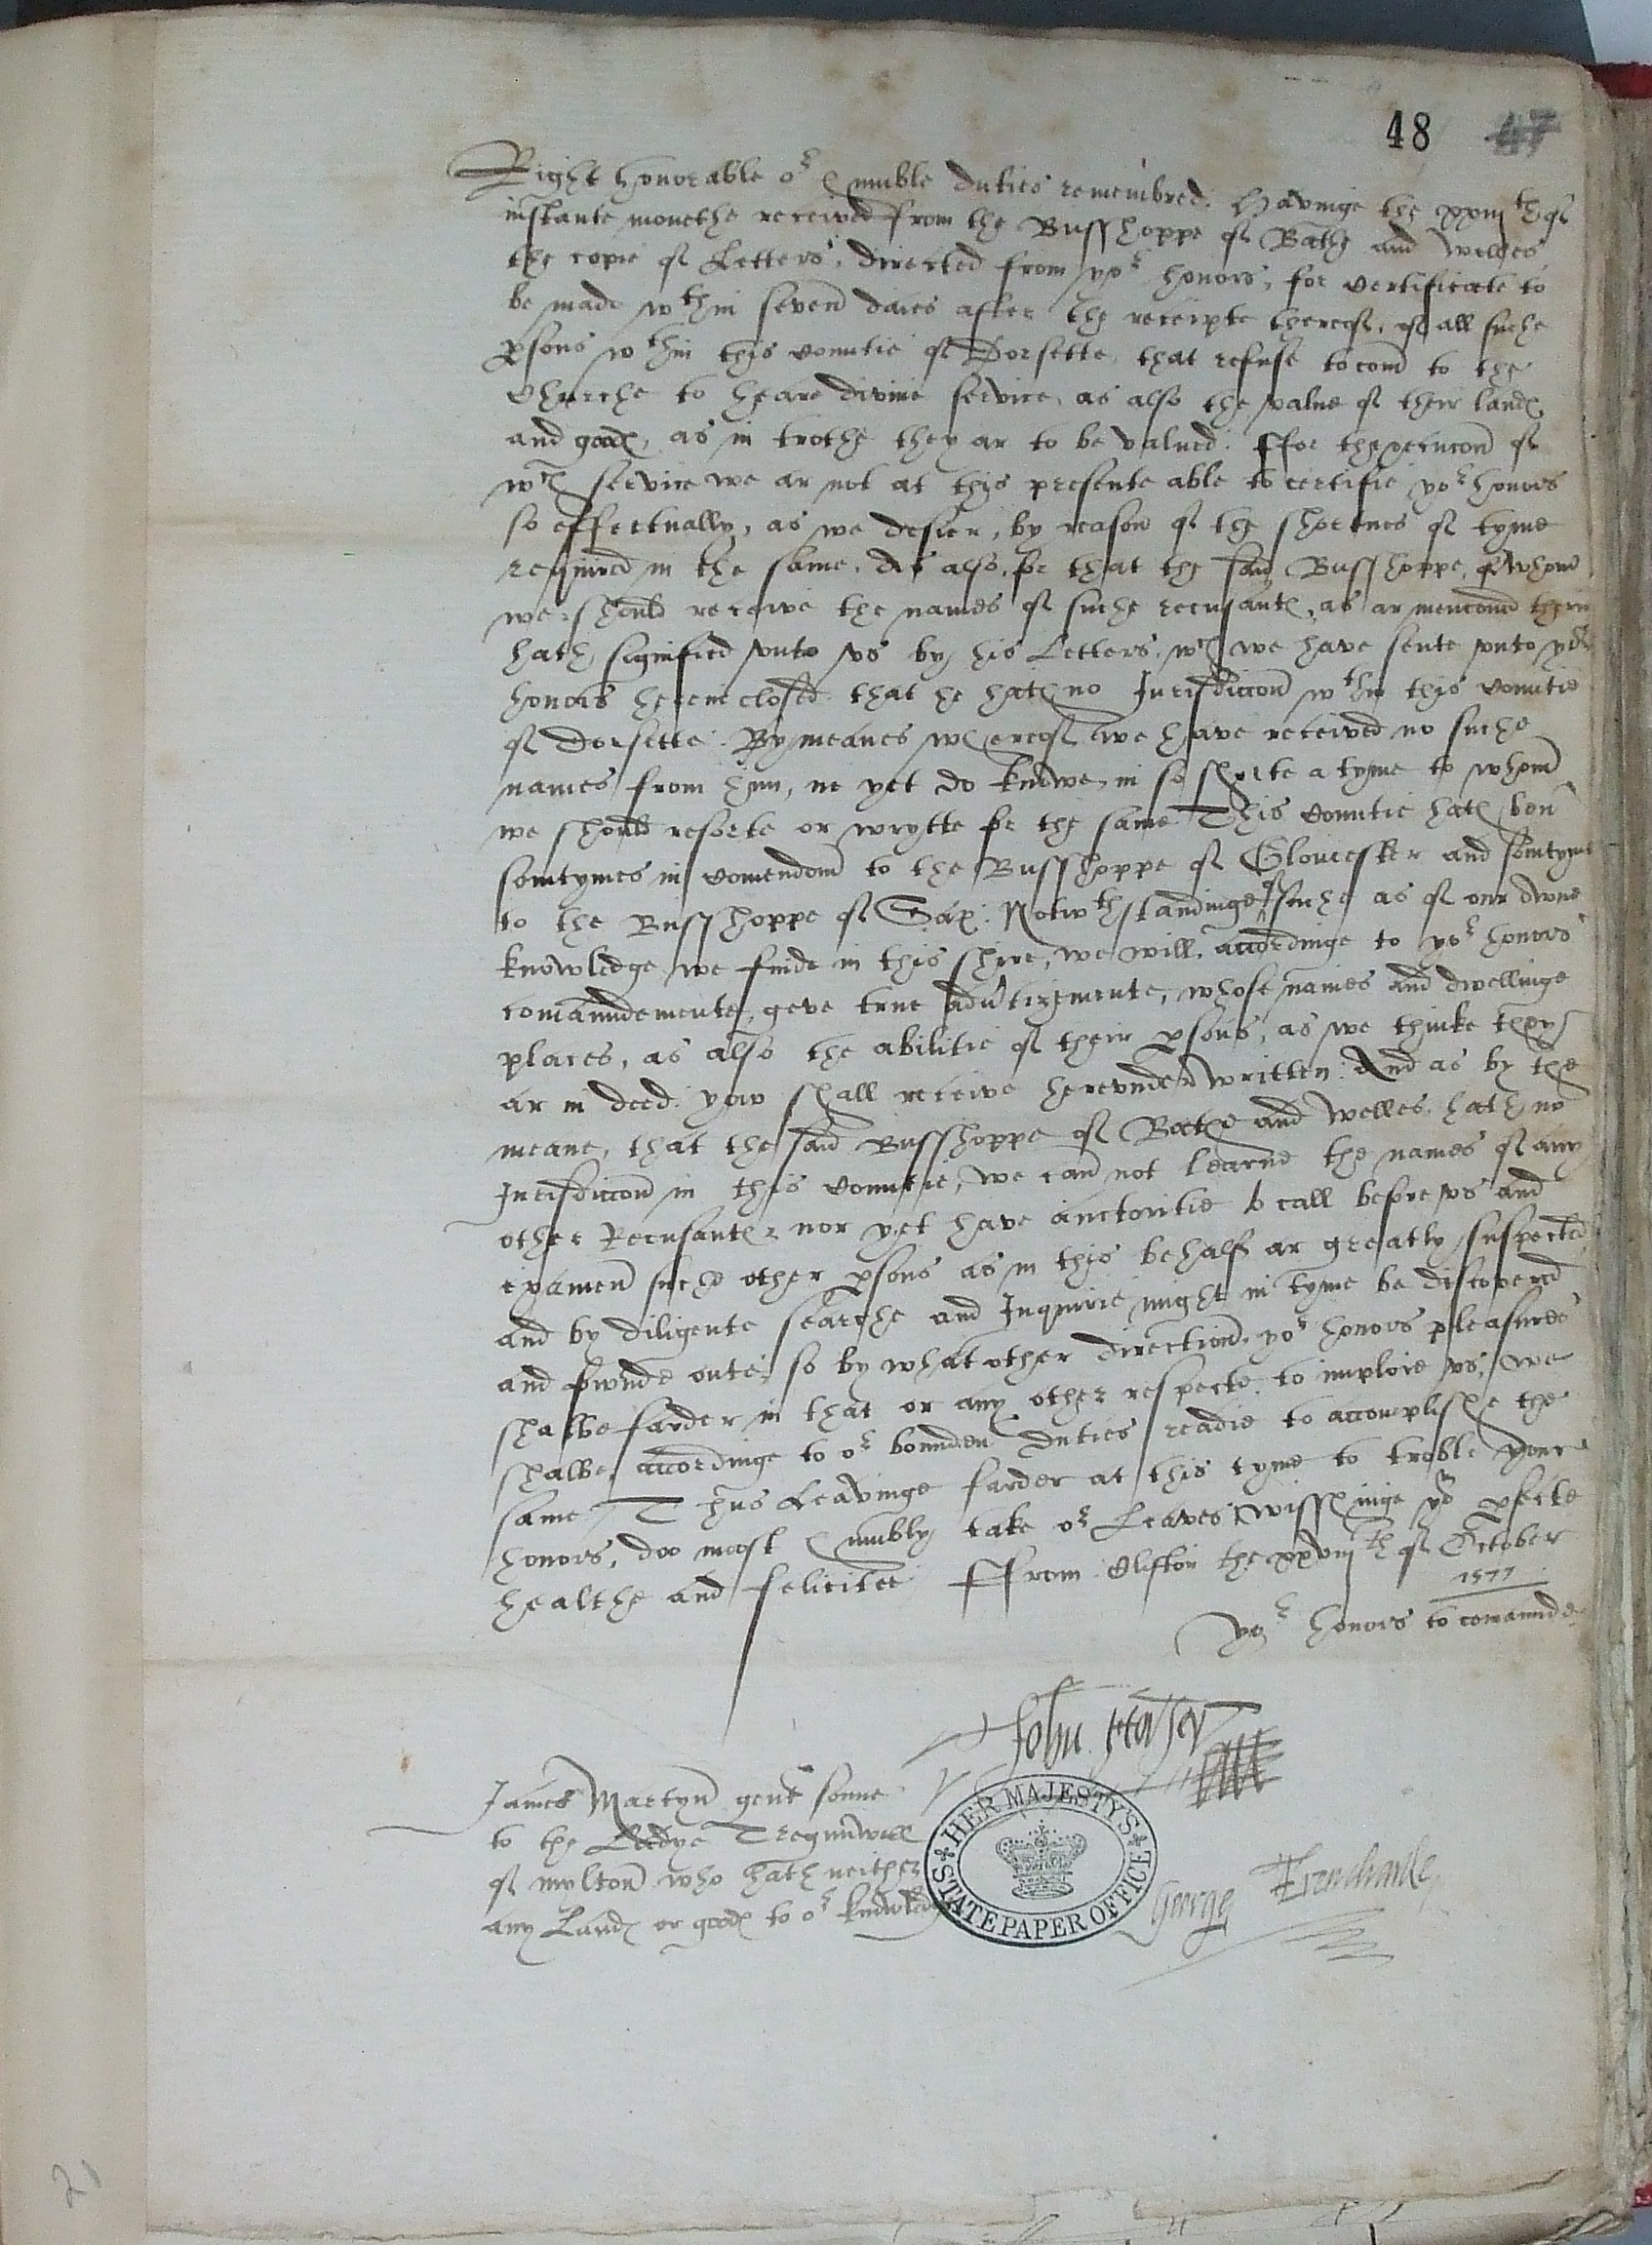 48 47
Right honorable or humble duties remembred. Havinge the xxiijth of
instante monethe received from the Busshoppe of Bathe and Welles
the copie of Letters, directed from yor honors, for certificate to
be made wthin seven daies after the receipte thereof, of all suche
psons wthin this Countie of Dorsette, that refuse to com to the
Churche to heare divine service, as also the value of their lands
and goods, as in trothe they ar to be valued. ffor thexecucon of
wch service we ar not at this presente able to certifie yor honors
so effectually, as we desier, by reason of the shortnes of tyme
required in the same. As also, for that the said Busshoppe, of whom
we should receive the names of suche recusants, as ar menconed therin
hath signified vnto vs by his Letters, wch we have sente vnto yor
honors hereinclosed that he hath no Jurisdiccon wthin this Countie
of Dorsette. By meanes whereof we have received no suche
names from him, ne yet do knowe, in so shorte a tyme to whom
we should resorte or wrytte for the same This Countie hath ben
somtymes in Comendom to the Busshoppe of Gloucester and somtyme
to the Busshoppe of Sar. Notwthstandinge of suche as of our owne
knowledge we finde in this shire, we will, accordinge to yor honors
comaundemente, geve true advertizmente, whose names and dwellinge
places, as also the abilitie of their psons, as we thinke they
ar in deed yow shall receive herevnder written. And as by the
meane, that the said Busshoppe of Bathe and Welles, hath no
Jurisdiccon in this Countie, we can not learne the names of any
other Recusants nor yet have auctoritie to call before vs and
examen suche other psons as in this behalf ar greatly suspected
and by diligente searche and Inquirie might in tyme be discovered
and fownde oute; so by what other direction, yor honors pleasures
shalbe farder in that or any other respecte to imploie vs, we
shalbe, accordinge to or bounden duties readie to accomplishe the
same. Thus Leavinge farder at this tyme to troble your
honors, doo most humbly take or Leaves, wisshinge yow pfecte
healthe and felicitee ffrom Clifton the xxviijth of October
1577
Yor honors to comaunde
John Horsey
James Martyn gent sonne
to the Ladye Tregunwell
of mylton who hath neither
any Lands or goods to or knowledge
George Trenchard
HER MAJESTY'S STATE PAPER OFFICE
21